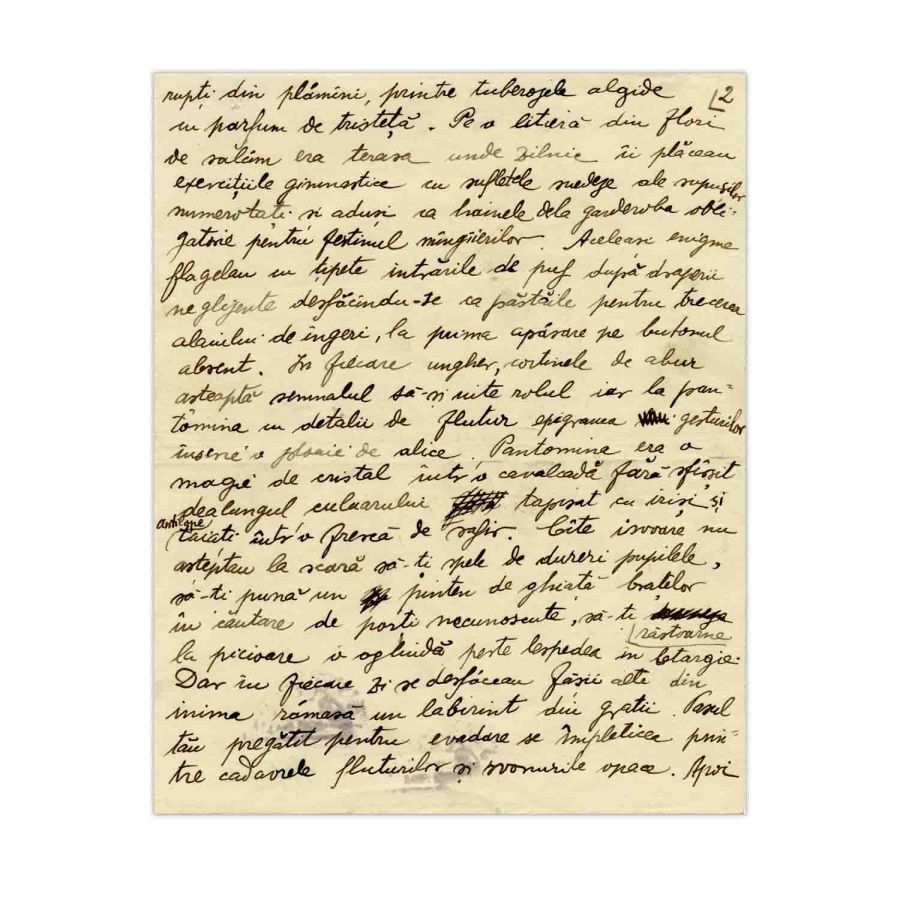 rupți din plămîni, printre tuberozele algide
2
cu parfum de tristeță. Pe o litieră din flori
de salcîm era terasa unde zilnic îi plăceau
exercițiile gimnastice cu sufletele suedeze ale supușilor
numerotati si adusi ca hainele dela garderoba obli-
gatorie pentru festinul mîngîierilor. Aceleasi enigme
flagelau cu țipete intrările de puf după draperii
neglijente desfăcîndu-se ca păstăile pentru trecerea
alaiului de îngeri, la prima apăsare pe butonul
absent. In fiecare ungher, cortinele de abur
asteaptă semnalul să-și uite rolul iar la pan-
tomina cu detalii de flutur epigrama gesturilor
înscrie o ploaie de alice. Pantomina era o
magie de cristal într'o cavalcadă fără sfîrsit
dealungul culoarului tapisat cu iriși și
taiati într'o frescă de safir. Cîte isvoare nu
asteptau la scară să-ti spele de dureri pupilele,
să-ti pună un pinten de ghiată bratelor
în căutare de porti necunoscute, să-ti
răstoarne
la picioare o oglindă peste lespedea in letargie.
Dar în fiecare zi se desfăceau făsii alte din
inima rămasă un labirint din gratii. Pasul
tău pregătit pentru evadare se împleticea prin-
tre cadavrele fluturilor și svonurile opace. Apoi